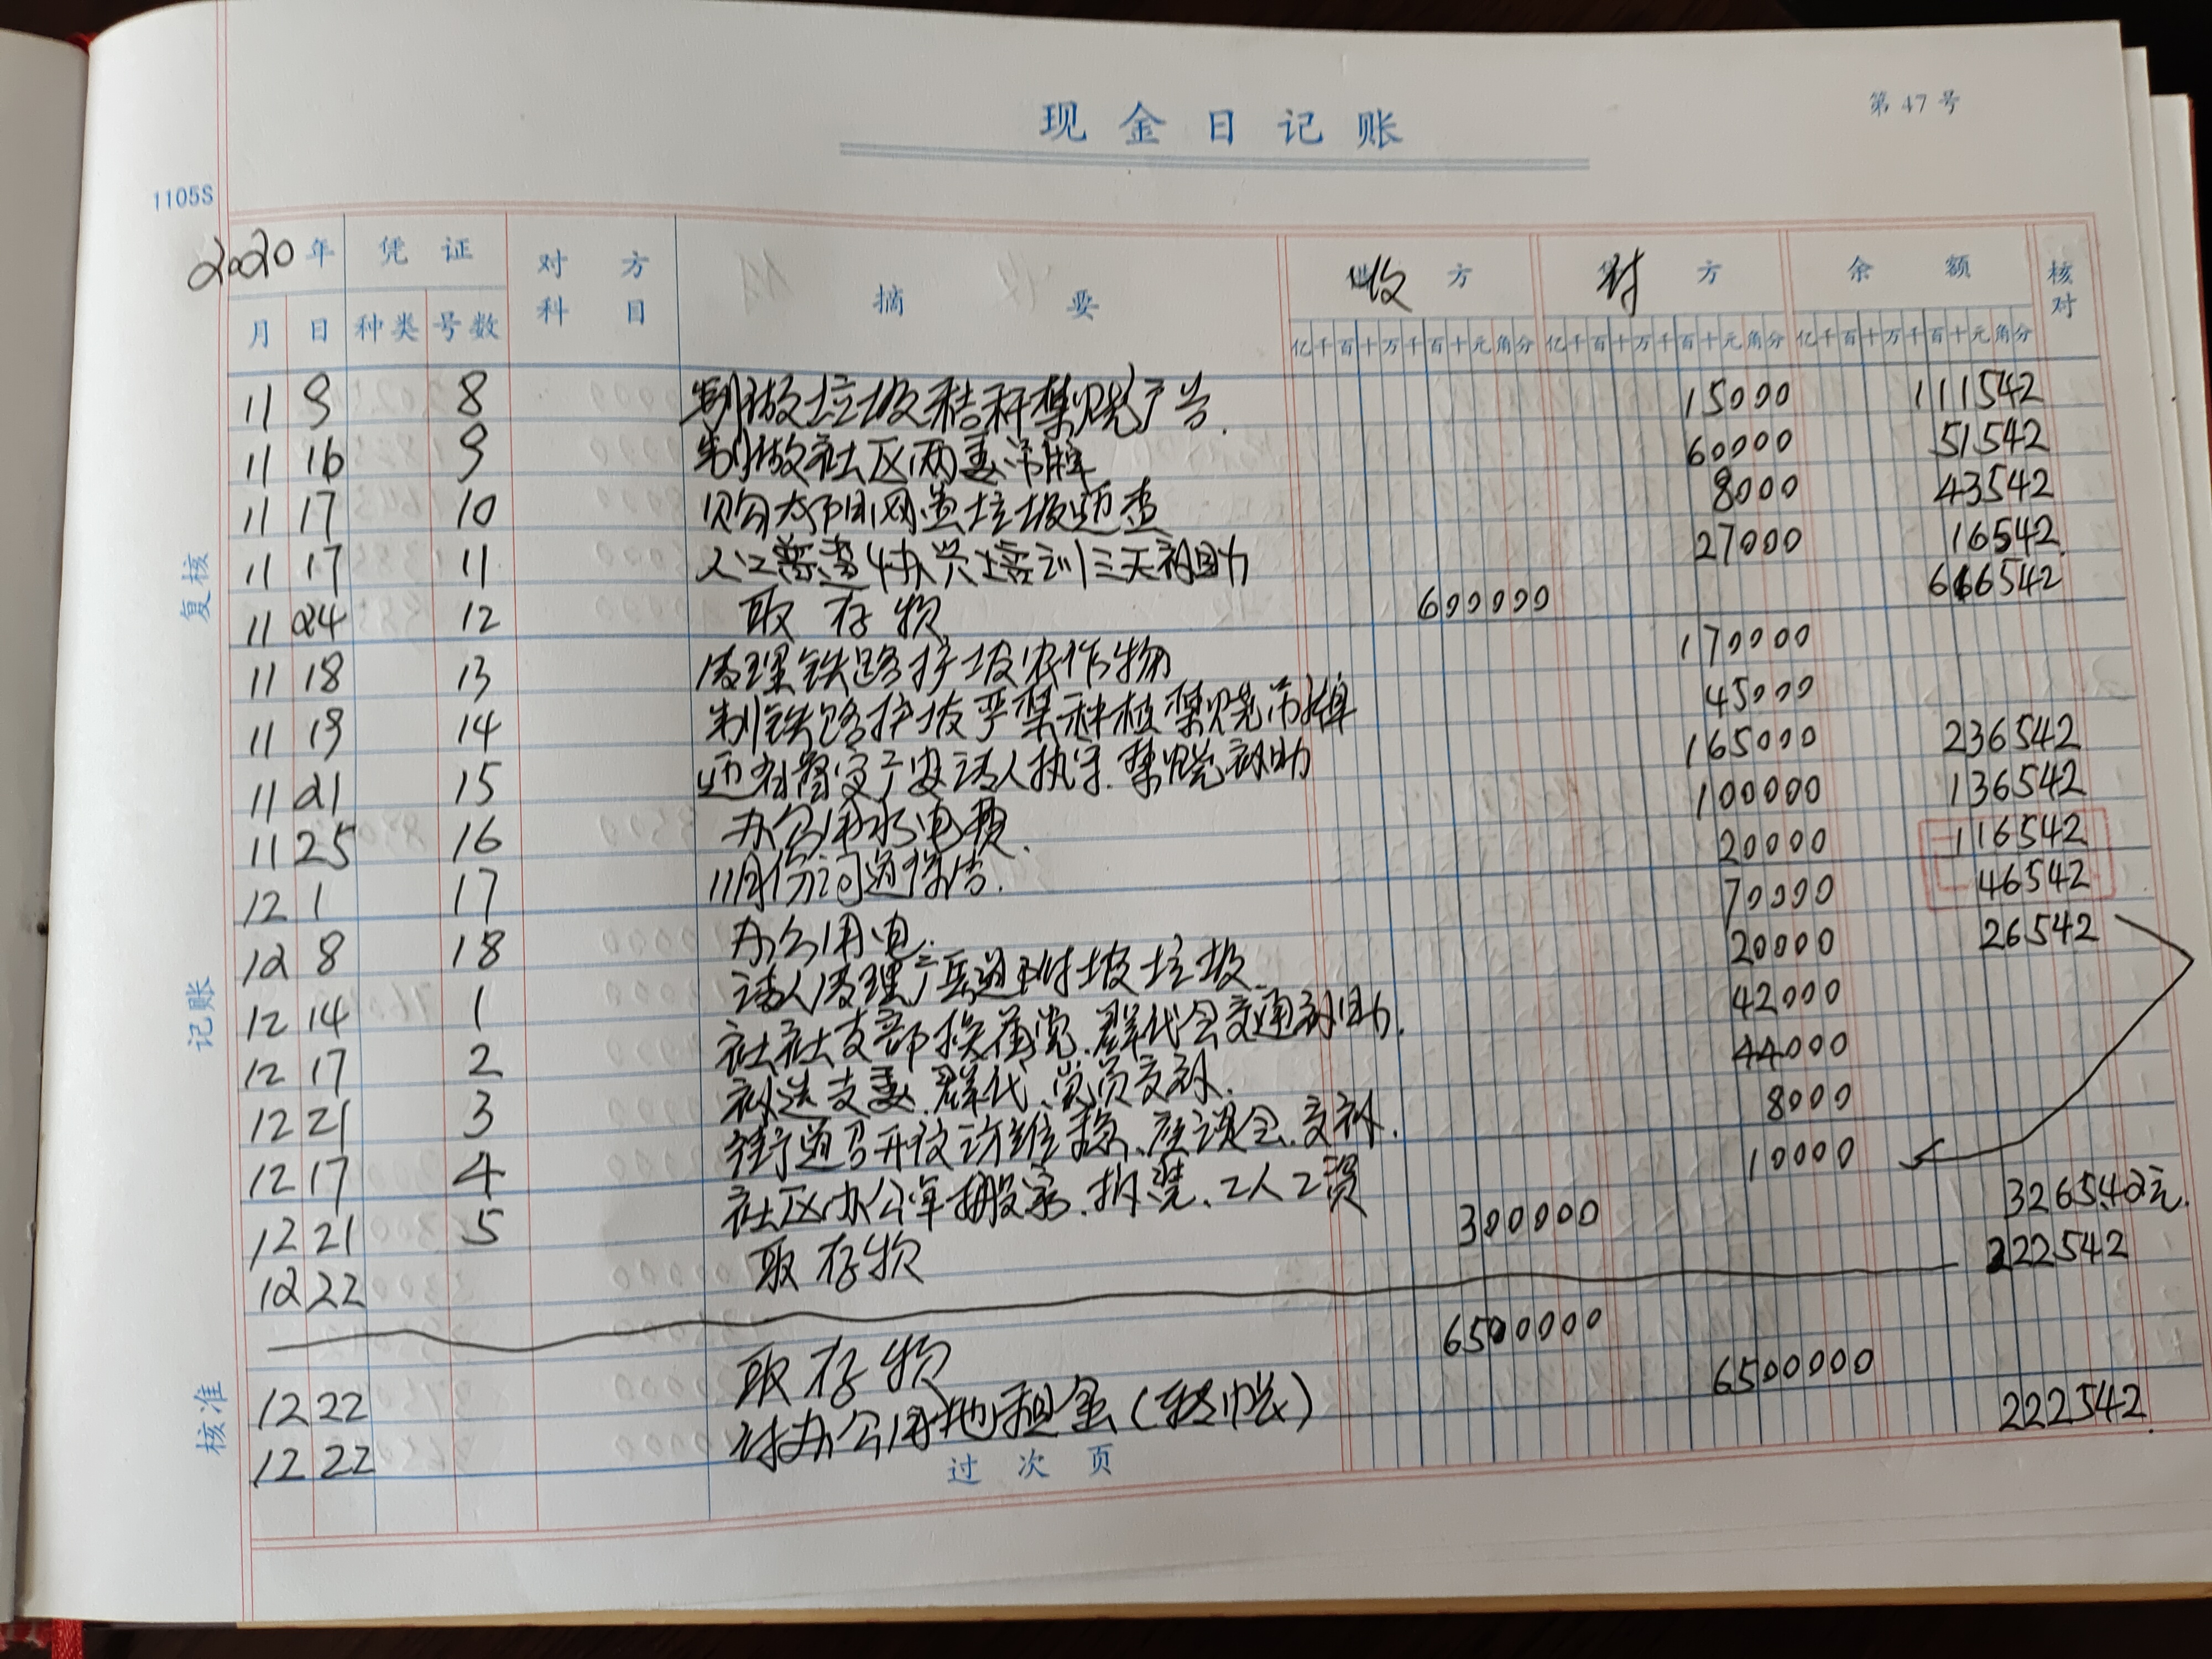 现金日记账
第 47 号
1105S
2020年 凭证 对方科目 摘要 收方 付方 余额 核对
月 日 种类 号数 亿千百十万千百十元角分 亿千百十万千百十元角分 亿千百十万千百十元角分
11 9 8 制做垃圾秸秆禁烧广告. 15000 111542
11 16 9 制做社区两委吊牌 60000 51542
11 17 10 购 垃圾 8000 43542
11 17 11 人口普查 培训三天补助 27000 16542
11 24 12 取存款 600000 616542
11 18 13 清理铁路护坡农作物 170000
11 19 14 制铁路护坡严禁种植禁烧吊牌 45000
11 21 15 请人执守.禁烧补助 165000 236542
11 25 16 办公用水电费. 100000 136542
12 1 17 11月份 20000 116542
12 8 18 办公用电. 70000 46542
12 14 1 请人清理 垃圾. 20000 26542
12 17 2 社社支部换届党.群代会交通补助. 42000
12 21 3 补选支委.群代.党员交补. 44000
12 17 4 街道召开 维稳.座谈会.交补. 8000
12 21 5 社区办公 搬家.拆装.工人工资 10000
12 22 取存款 300000 326542元.
222542
12 22 取存款 6500000
12 22 付办公用地租金(转账) 6500000 222542
过次页
复核
记账
核准